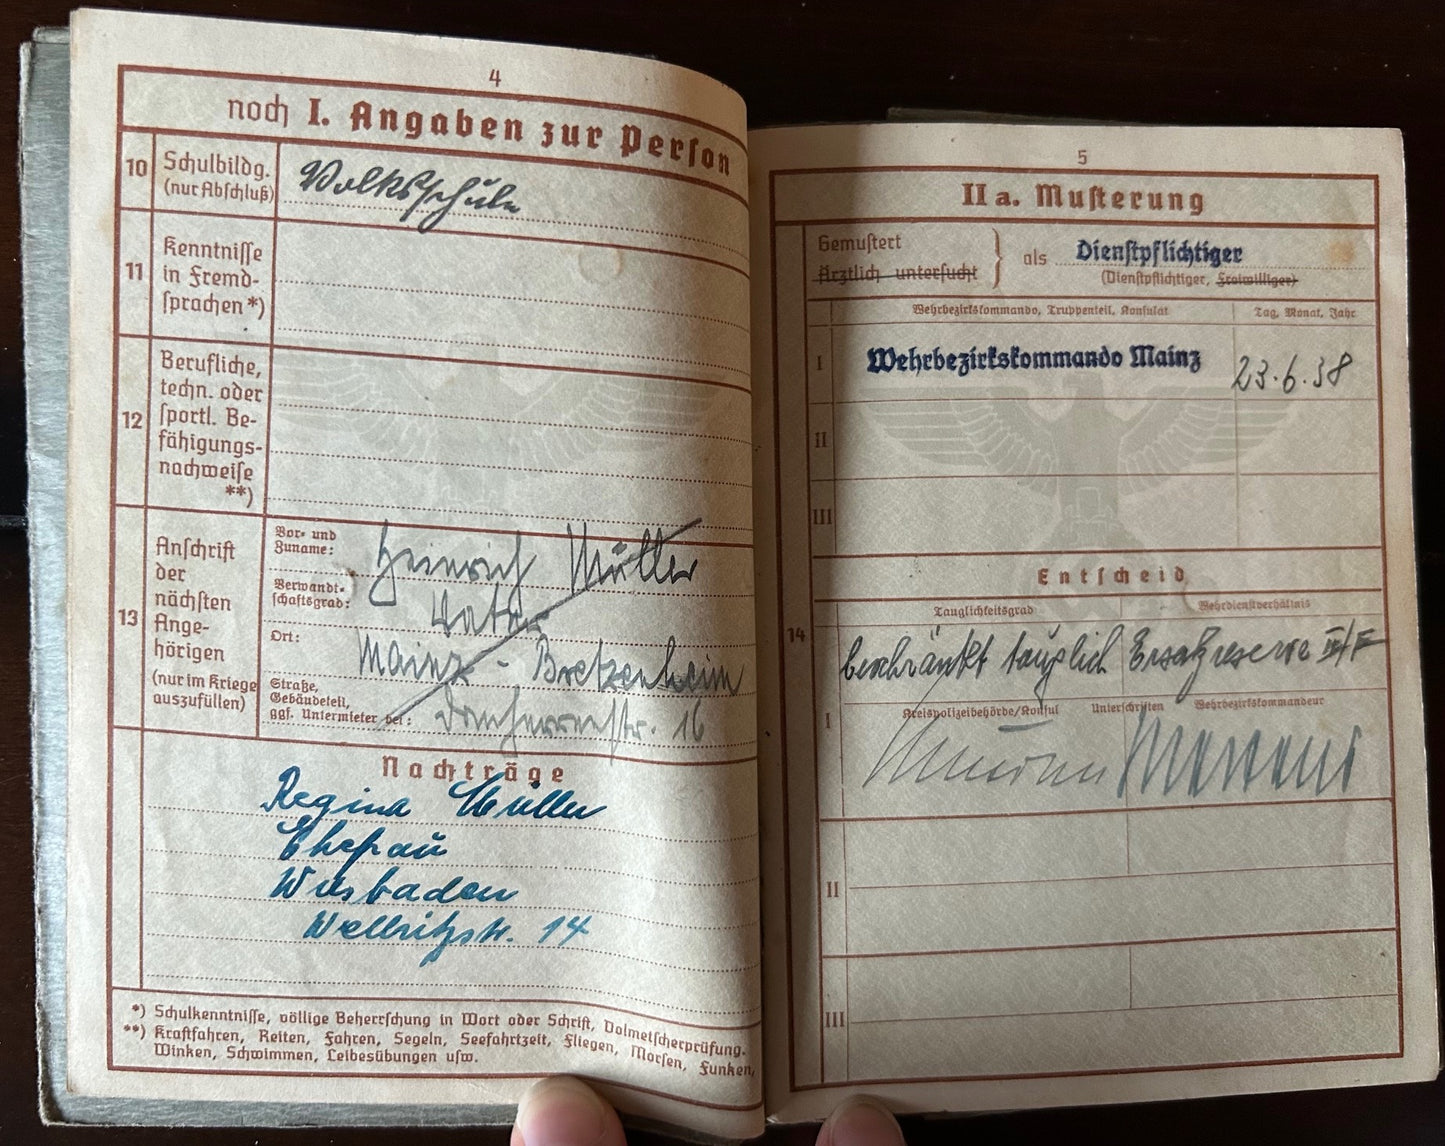 4
noch I. Angaben zur Person
10
Schulbildg.
(nur Abschluß)
Volksschule
11
Kenntnisse
in Fremd-
sprachen *)
12
Berufliche,
techn. oder
sportl. Be-
fähigungs-
nachweise
**)
13
Anschrift
der
nächsten
Ange-
hörigen
(nur im Kriege
auszufüllen)
Vor- und
Zuname:
Heinrich Müller
Verwandt-
schaftsgrad:
Vater
Ort:
Mainz - Bretzenheim
Straße,
Gebäudeteil,
ggf. Untermieter bei:
Domherrenstr. 16
Nachträge
Regina Müller
Ehefrau
Wiesbaden
Wellritzstr. 14
*) Schulkenntnisse, völlige Beherrschung in Wort oder Schrift, Dolmetscherprüfung.
**) Kraftfahren, Reiten, Fahren, Segeln, Seefahrtzeit, Fliegen, Morsen, Funken,
Winken, Schwimmen, Leibesübungen usw.
5
II a. Musterung
Gemustert
Ärztlich untersucht
als Dienstpflichtiger
(Dienstpflichtiger, Freiwilliger)
Wehrbezirkskommando, Truppenteil, Konsulat
Tag, Monat, Jahr
I
Wehrbezirkskommando Mainz
23.6.38
II
III
Entscheid
14
Tauglichkeitsgrad
Wehrdienstverhältnis
beschränkt tauglich
Ersatzreserve
I
Kreispolizeibehörde/Konsul
Unterschriften
Wehrbezirkskommandeur
II
III